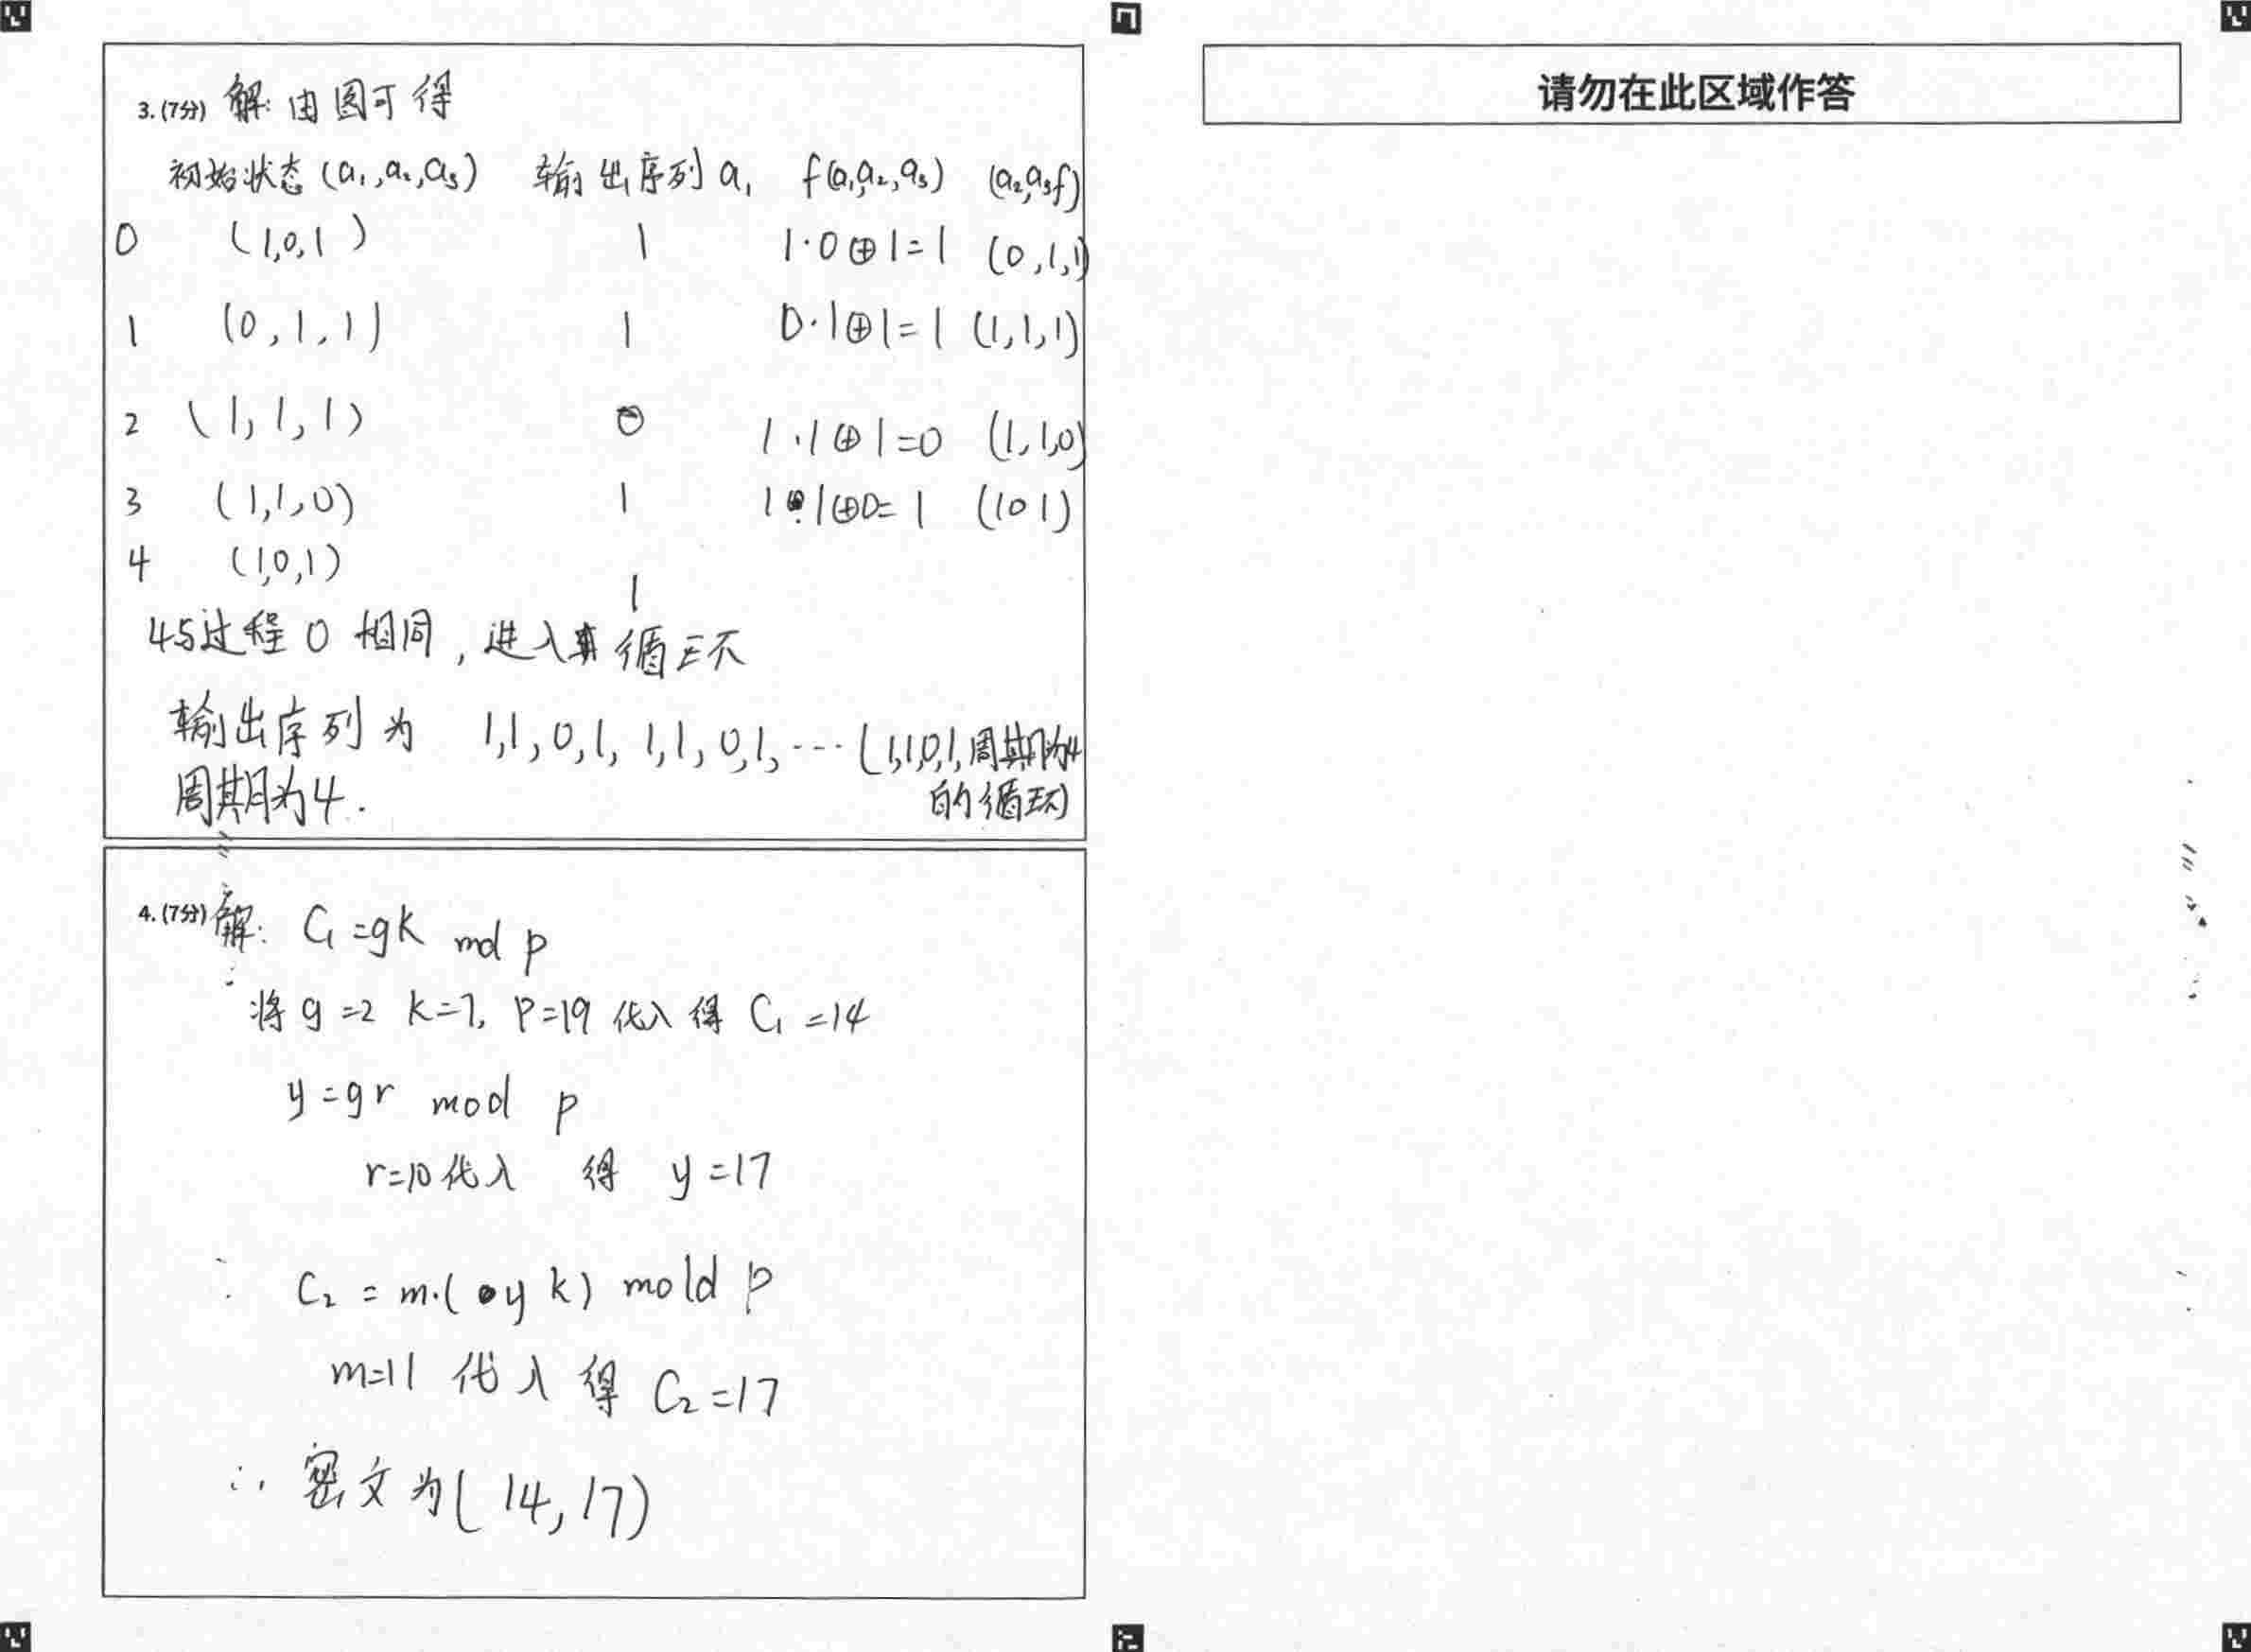 请勿在此区域作答
3. (7分) 解: 由图可得
初始状态 (a₁,a₂,a₃) 输出序列 a₁ f(a₁,a₂,a₃) (a₂,a₃f)
0 (1,0,1) 1 1·0⊕1=1 (0,1,1)
1 (0,1,1) 1 0·1⊕1=1 (1,1,1)
2 (1,1,1) 0 1·1⊕1=0 (1,1,0)
3 (1,1,0) 1 1·1⊕0=1 (101)
4 (1,0,1) 1
4与过程0相同,进入循环
输出序列为 1,1,0,1,1,1,0,1,··· (1,1,0,1,周期为4
的循环)
周期为4.
4. (7分) 解: C₁=gk mod p
将 g=2 k=7, P=19 代入得 C₁=14
y=gr mod p
r=10代入 得 y=17
C₂=m·(y k) mold p
m=11 代入得 C₂=17
∴ 密文为(14,17)